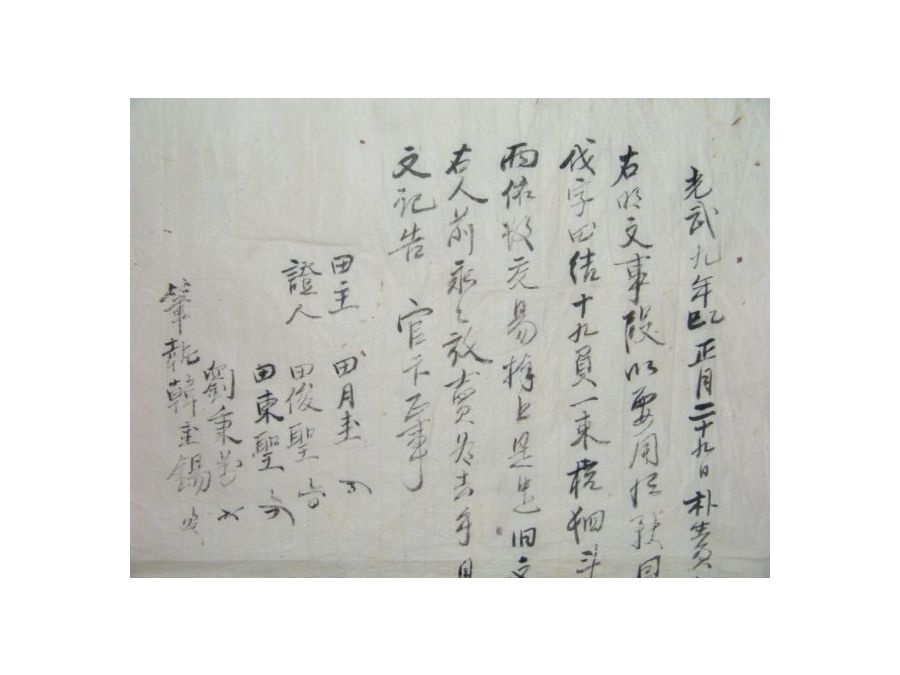 光武九年乙巳正月二十九日朴貴
右明文事段以要用所致
伐字田結十九負一束
兩依數交易捧上是遣旧文
右人前永永放賣爲去乎日
文記告官卞正事
田主 田月圭
證人 田俊聖
田東聖
劉秉
筆執韓圭錫